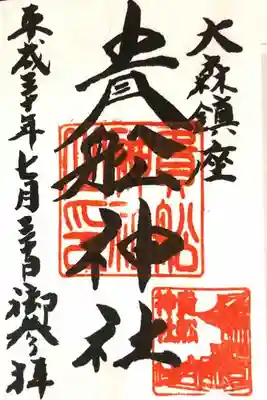 大森鎮座
貴船神社
平成三十年七月三十日御参拝